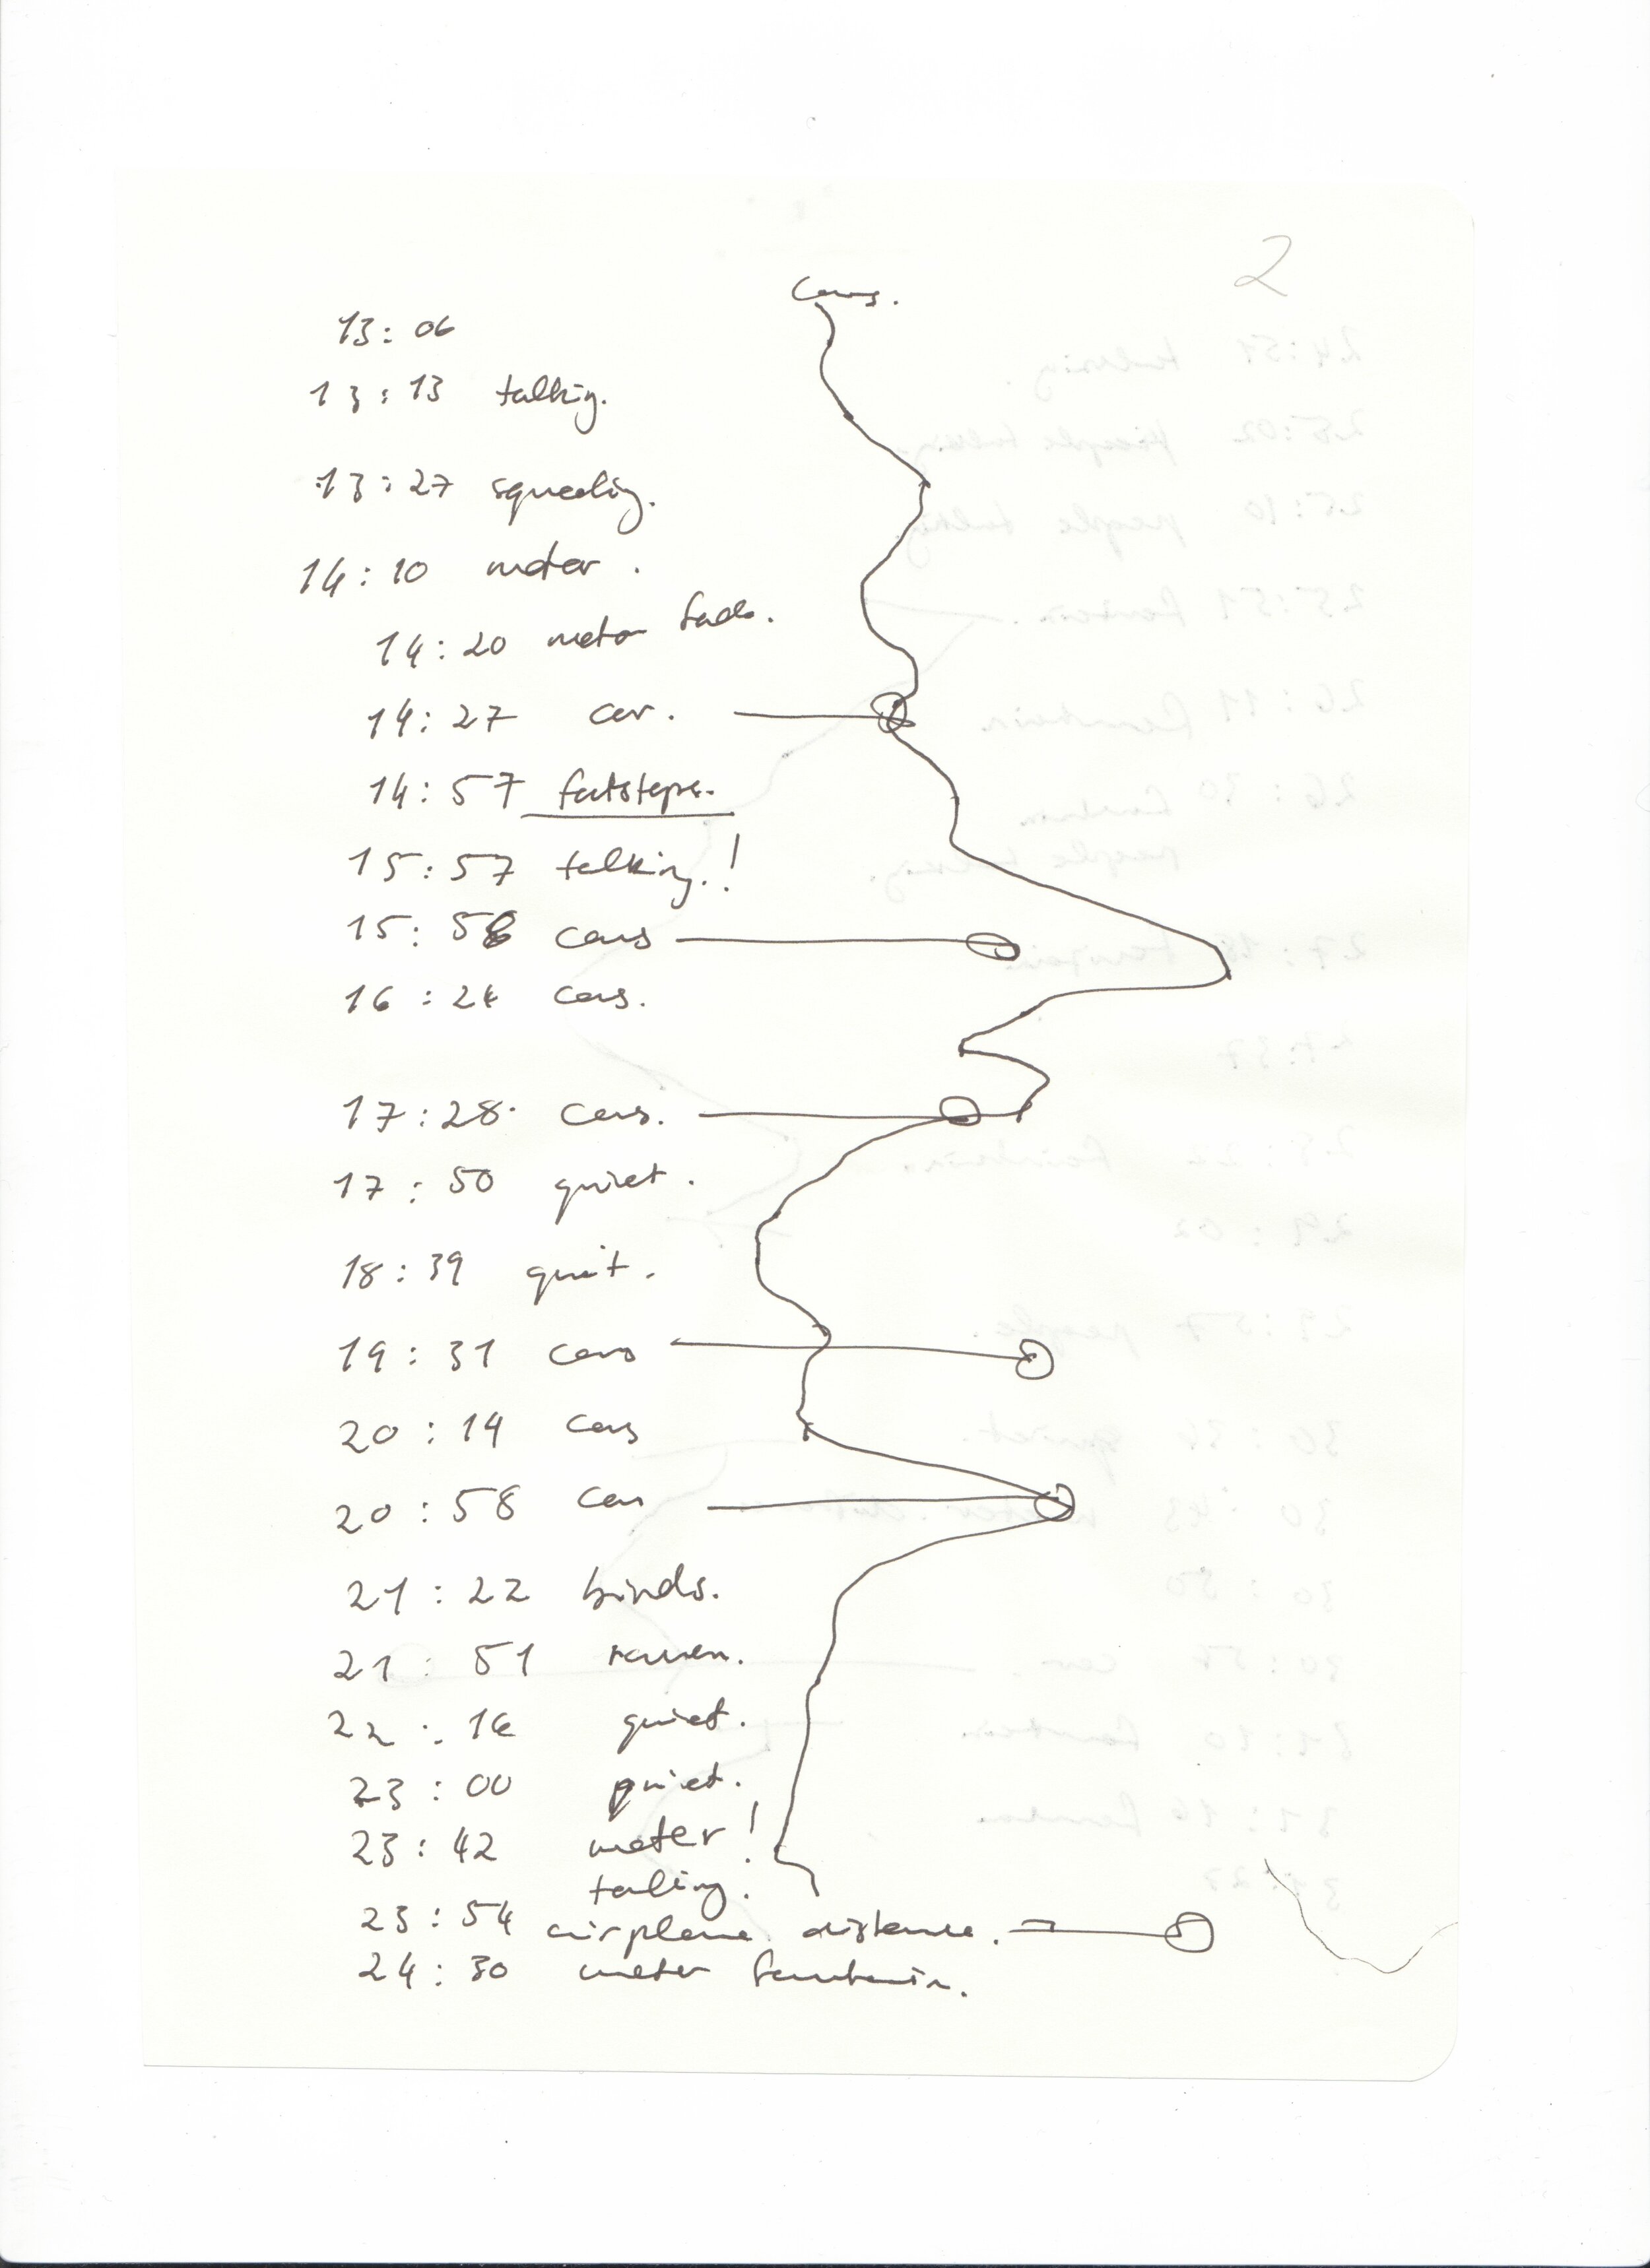 2
Cars.
13:06
13:13 talking.
13:27 squeaking.
14:10 motor.
14:20 motor fade.
14:27 car.
14:57 footsteps.
15:57 talking.!
15:58 cars
16:24 cars.
17:28. cars.
17:50 quiet.
18:39 quiet.
19:31 cars
20:14 cars
20:58 car
21:22 birds.
21:51
22:16 quiet.
23:00 quiet.
23:42 !
talking.
23:54 airplane distance.
24:30 fountain.